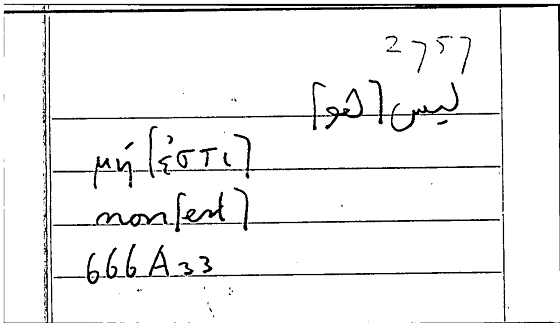 2757
ليس [هو]
μή [ἐστι]
non [est]
666A33